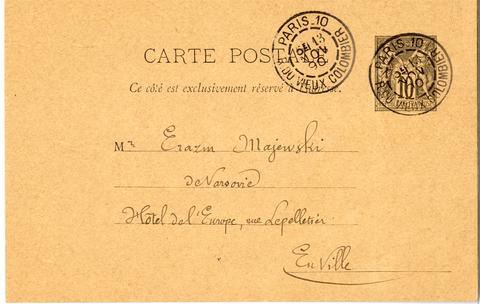 CARTE POSTALE
Ce côté est exclusivement réservé à l'adresse.
PARIS_10
R. DU VIEUX COLOMBIER
PARIS_10
R. DU VIEUX COLOMBIER
10
Mr Erazm Majewski
de Varsovie
Hôtel de l'Europe, rue Lepelletier
En Ville